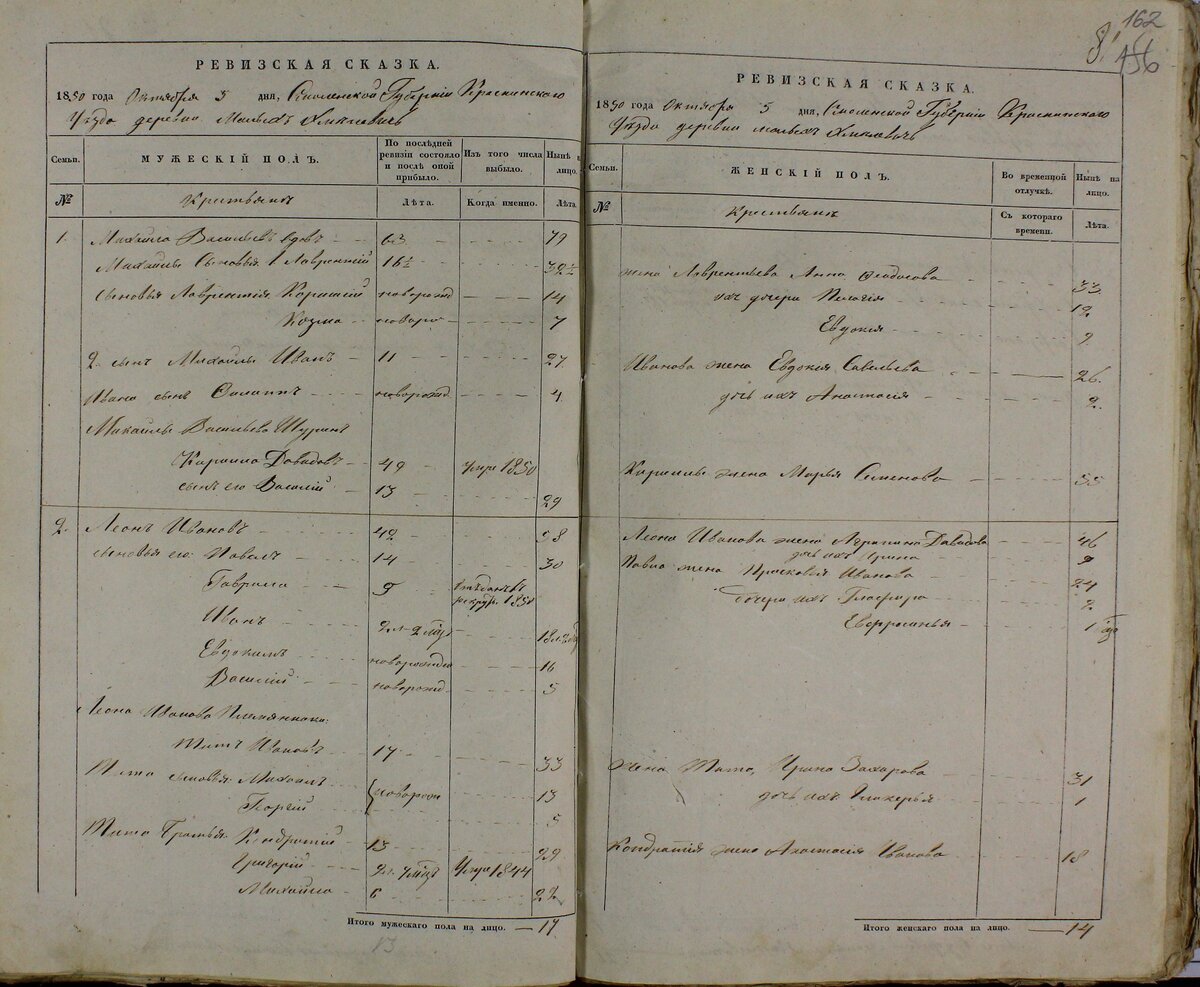 162
456
РЕВИЗСКАЯ СКАЗКА.
1850 года Октября 5 дня, Смоленской Губерніи Краснинскаго
Уѣзда деревни
Семьи.
МУЖЕСКІЙ ПОЛЪ.
По послѣдней ревизіи состояло и послѣ оной прибыло.
Изъ того числа выбыло.
Нынѣ на лицо.
№
Крестьянъ
Лѣта.
Когда именно.
Лѣта.
1. Михайла Васильевъ вдовъ 63
Михайлы Сыновья 1 Лаврентій 16½ 32½
сыновья Лаврентія новорожд 14
Козма новоро 7
2. сынъ Михайлы Иванъ 11 27
Ивана сынъ Филипъ новорожд 4
Михайлы Васильева Шуринъ
Кирилла Давидовъ 49 умре 1850
сынъ его Василій 13 29
2. Леонъ Ивановъ 42 58
сыновья его: Павелъ 14 30
Гаврила 9 отданъ въ рекруты 1850
Иванъ
Евдокимъ новорожд 16
Василій новорожд 5
Леона Иванова Племянники:
Титъ Ивановъ 17 33
Тита сыновья: Михаилъ новорожд 13
Георгій 5
Тита Братья: Кондратій 13 29
Григорій Умре 1844
Михайла 6 22
Итого мужескаго пола на лицо. — 17
13
РЕВИЗСКАЯ СКАЗКА.
1850 года Октября 5 дня, Смоленской Губерніи Краснинскаго
Уѣзда деревни
Семьи.
ЖЕНСКІЙ ПОЛЪ.
Во временной отлучкѣ.
Нынѣ на лицо.
№
Крестьянъ
Съ котораго времени.
Лѣта.
жена Лаврентьева Анна Феодосова 33
ихъ дочери Пелагія 12
Евдокія 9
Иванова жена Евдокія Савельева 26
дочь ихъ Анастасія 2
Кирилы жена Марья Семенова 55
Леона Иванова жена Агрипина Давидова 46
дочь ихъ Ирина 9
Павла жена Прасковья Иванова 24
дочери ихъ Глафира 2
Евфросинья
жена Тита, Ирина Захарова 31
дочь ихъ Гликерья 1
Кондратія жена Анастасія Иванова 18
Итого женскаго пола на лицо. — 14